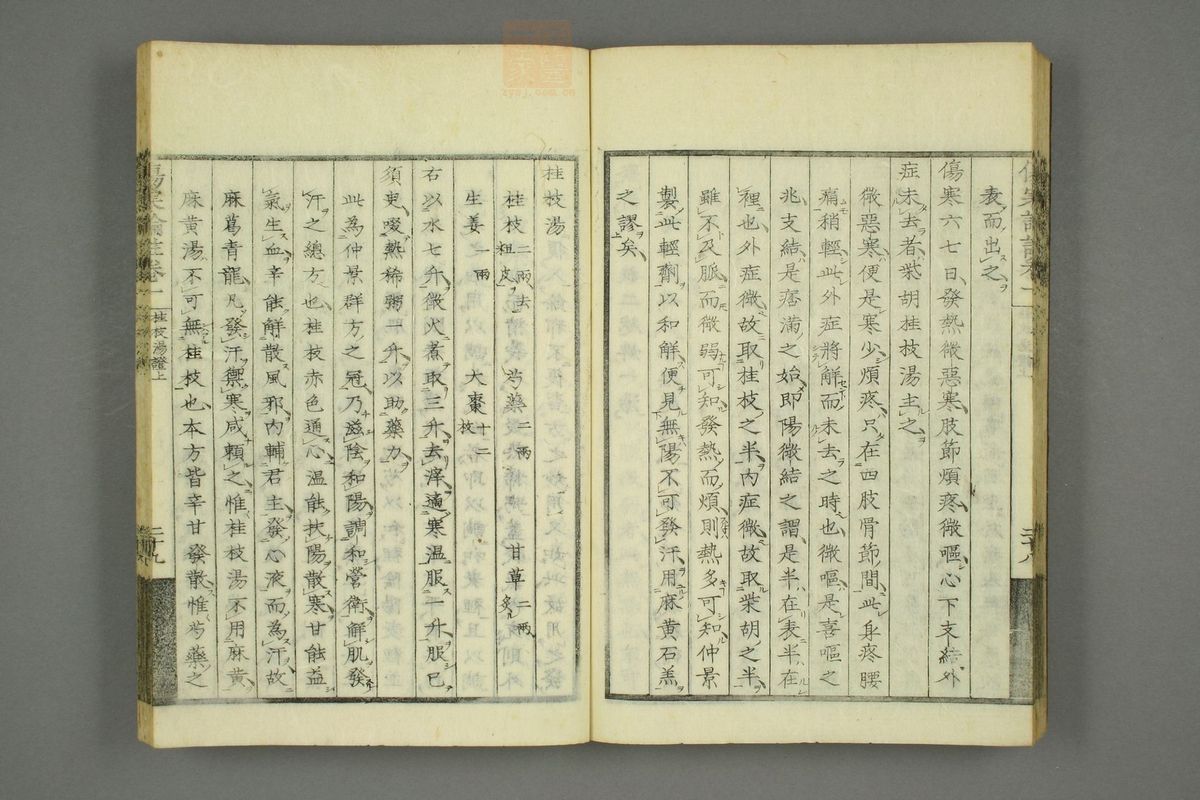 表而出之
傷寒六七日發熱微惡寒肢節煩疼微嘔心下支結外
症未去者柴胡桂枝湯主之
微惡寒便是寒少煩疼只在四肢骨節間此身疼腰
痛稍輕此外症將解而未去之時也微嘔是喜嘔之
兆支結是痞滿之始即陽微結之謂是半在表半在
裡也外症微故取桂枝之半內症微故取柴胡之半
雖不及脈而微弱可知發熱而煩則熱多可知仲景
製此輕劑以和解便見無陽不可發汗用麻黃石羔
之謬矣
桂枝湯
桂枝二兩去粗皮 芍藥二兩 甘草二兩炙
生姜二兩 大棗十二枚
右以水七升微火煮取三升去滓適寒温服一升服已
須更啜熱稀粥一升以助藥力
此為仲景群方之冠乃滋陰和陽調和營衛解肌發
汗之總方也桂枝赤色通心温能扶陽散寒甘能益
氣生血辛能解散風邪內輔君主發心液而為汗故
麻葛青龍凡發汗禦寒咸賴之惟桂枝湯不用麻黃
麻黃湯不可無桂枝也本方皆辛甘發散惟芍藥之
傷寒論註卷一
桂枝湯證上
二十八
二十九
zysj.com.cn